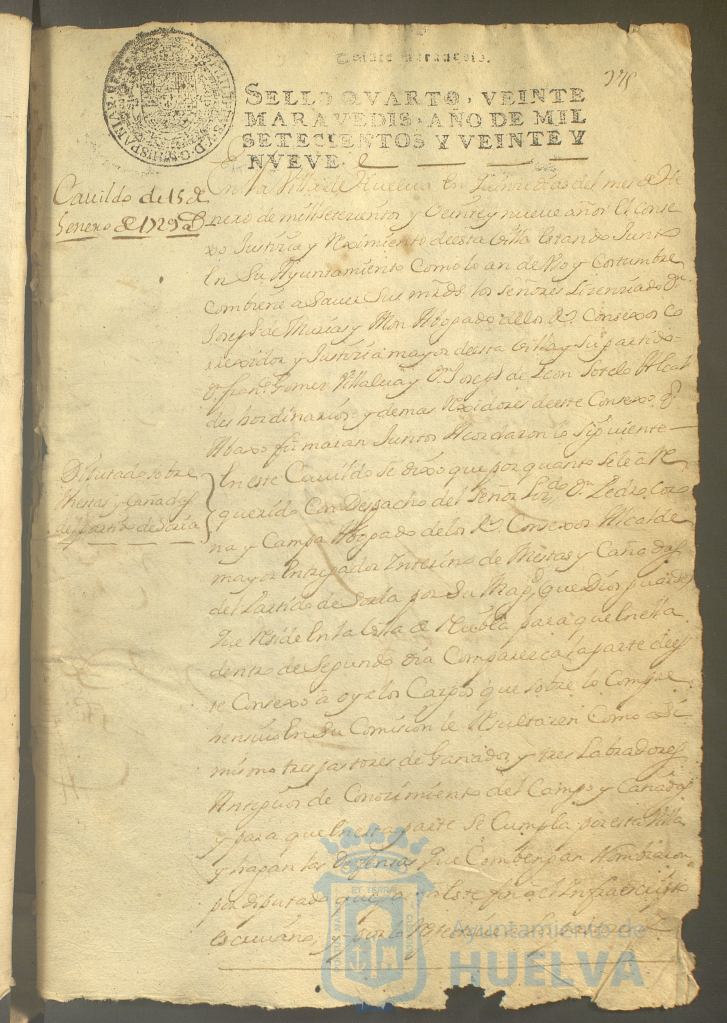 Veinte maravedis.
SELLO QVARTO, VEINTE
MARAVEDIS, AÑO DE MIL
SETECIENTOS Y VEINTE Y
NVEVE.
Cavildo de 15 de
henero de 1729 as
En la Villa de Huelva en quinze dias del mes de He
nero de mill setecientos y Veinte y nueve años El Conse
xo Justicia y Reximiento de esta Villa estando Junto
en Su Ayuntamiento Como lo an de Uso y Costumbre
Combiene a Saver Sus mrds. los señores Lizenziado Dn.
Joseph de Murias y Mon Abogado de los Rs. Consexos Co
rrexidor y Justicia mayor de esta Villa y Su partido
Dn. fran.co Gomez Villalva y Dn. Joseph de Leon Sotelo Alcal
des hordinarios y demas Rexidores de este Consexo q
Abaxo firmaran Juntos Acordaron lo Siguiente
Diputado sobre
Mestas y cañadas
de partido de Soria
En este Cavildo Se dixo que por quanto Se le a Re
querido Con Despacho del Señor Lizdo. Dn. Pedro Coro
na y Campa Abogado de los Rs. Consexos Alcalde
mayor Entregador Interino de Mestas y Cañadas
del Partido de Soria por Su Magd. que Dios guarde
que reside En la Villa de Niebla para que En ella
dentro de Segundo dia Comparezca la parte de es
te Consexo a oyr los Cargos que sobre lo Compre
hensivo En Su Comision le Resultaren Como asi
mismo tres pastores de Ganados y tres Labradores
Antiguos de Conocimiento del Campo y Cañadas
y para que En esta parte Se Cumpla por esta Villa
y hagan las Defensas que Combengan Nombraron
por diputado para este fin a el Infraescripto
escrivano,
ET TERRAE
CUSTODIA
Ayuntamiento de
HUELVA